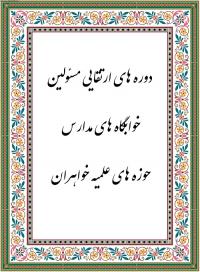 دوره های ارتقایی مسئولین
خوابگاه های مدارس
حوزه های علمیه خواهران